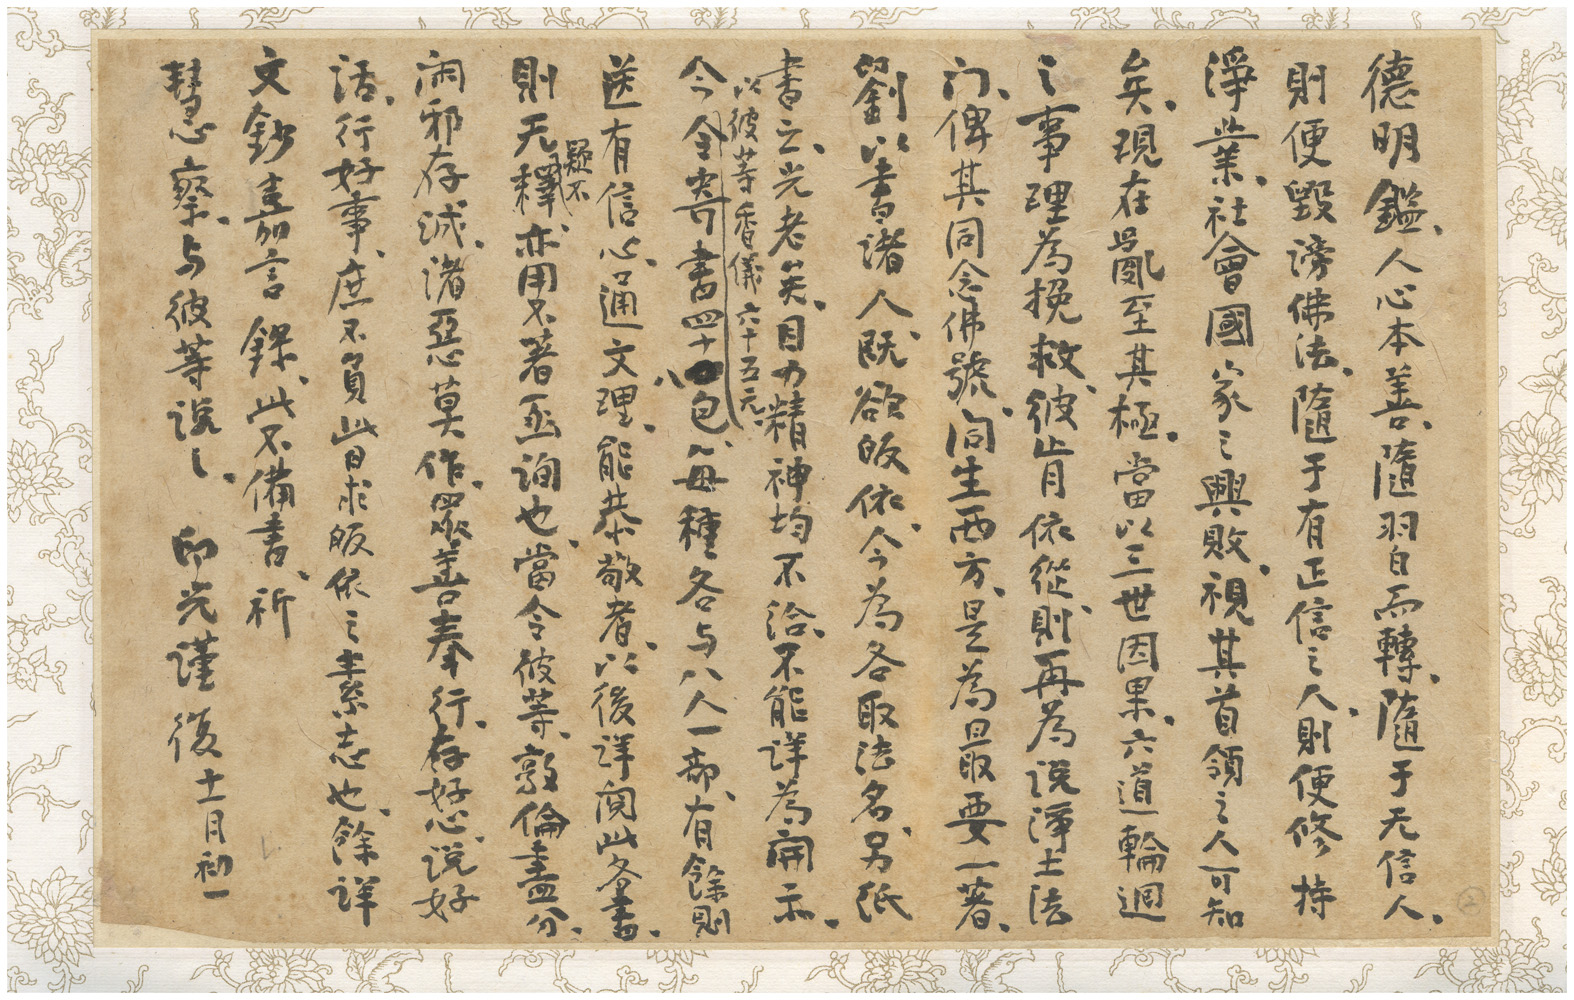 德明鑑、人心本善、隨習自而轉、隨于无信人、
則便毀謗佛法、隨于有正信之人、則便修持
淨業、社會國家之興敗、視其首領之人可知
矣、現在亂至其極、當以三世因果、六道輪迴
之事理為挽救、彼肯依從、則再為說淨土法
门、俾其同念佛號、同生西方、是為最要一著、
劉以書諸人、既欲皈依、今為各取法名、另紙
書之、光老矣、目力精神均不給、不能詳為開示、
以彼等香儀六十五元、
今令寄書四十八包、每種各与八人一部、有餘則
送有信心、通文理、能恭敬者、以後詳閱此各書、
則无疑不釋、亦用不著函詢也、當令彼等、敦倫盡分、
闲邪存诚、诸惡莫作、眾善奉行、存好心、说好
话、行好事、庶不負此日求皈依之素志也、餘詳
文鈔嘉言錄、此不備書、祈
慧察、与彼等说之、 印光謹復 十一月初一